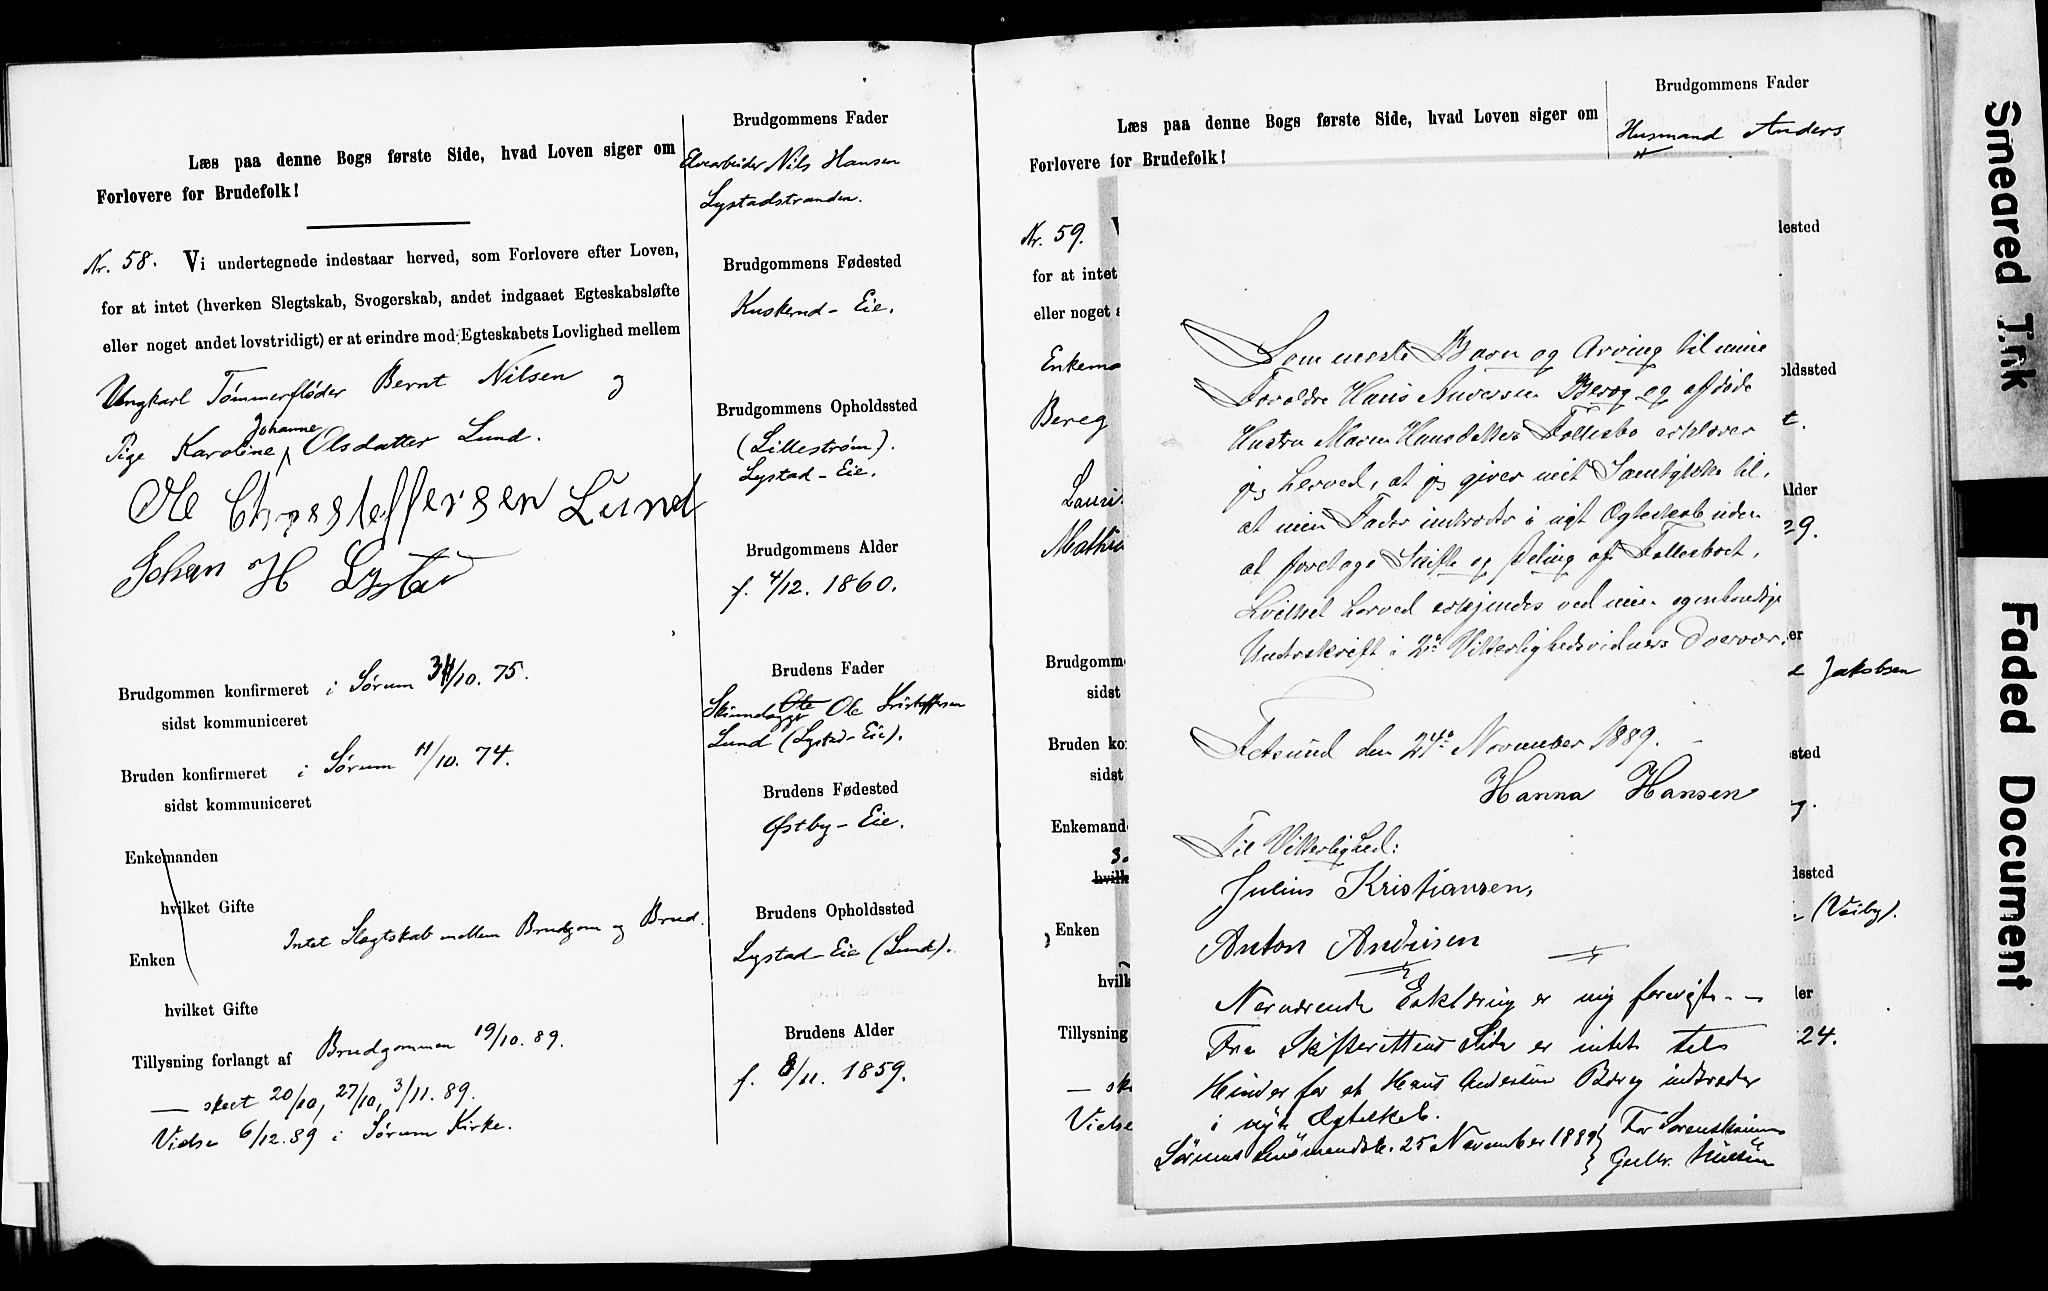 Læs paa denne Bogs første Side, hvad Loven siger om
Forlovere for Brudefolk!
Nr. 58. Vi undertegnede indestaar herved, som Forlovere efter Loven,
for at intet (hverken Slegtskab, Svogerskab, andet indgaaet Egteskabsløfte
eller noget andet lovstridigt) er at erindre mod Egteskabets Lovlighed mellem
Ungkarl Tømmerfløder Bernt Nilsen og
Johanne
Pige Karoline Olsdatter Lund.
Ole Chrissteffersen Lund
Johan H Lystad
Brudgommen konfirmeret i Sørum 31/10. 75.
sidst kommuniceret
Bruden konfirmeret i Sørum 11/10. 74.
sidst kommuniceret
Enkemanden
hvilket Gifte
Intet Slegtskab mellem Brudgom og Brud.
Enken
hvilket Gifte
Tillysning forlangt af Brudgommen 19/10. 89.
— skeet 20/10, 27/10, 3/11. 89.
Vielse 6/12. 89 i Sørum Kirke.
Brudgommens Fader
Elvearbeider Nils Hansen
Lystadstranden.
Brudgommens Fødested
Kuskerud - Eie.
Brudgommens Opholdssted
(Lillestrøm).
Lystad - Eie.
Brudgommens Alder
f. 4/12. 1860.
Brudens Fader
Ole Ole Kristoffersen
Lund (Lystad - Eie).
Brudens Fødested
Østby - Eie.
Brudens Opholdssted
Lystad - Eie (Lund).
Brudens Alder
f. 8/11. 1859.
Læs paa denne Bogs første Side, hvad Loven siger om
Forlovere for Brudefolk!
Brudgommens Fader
Husmand Anders
Nr. 59. V
for at intet
eller noget
Enkema
Bereg
Lauri
Mathia
Brudgomm
sidst
Bruden ko
sidst
Enkemand
hvilk
Enken
hvilk
Tillysning
— sk
Vielse
dested
oldssted
t.
Alder
29.
er
Jakobsen
sted
g.
dssted
(Vaiby).
der
24.
Som meste Barn og Arving til mine
Forældre Hans Andersen Berøg og afdøde
Hustru Maren Hansdatter Follesbo erklærer
jeg herved, at jeg giver mit Samtykke til,
at min Fader indtræder i nyt Ægteskab uden
at foretage Skifte og Deling af Fællesboet,
hvilket herved erkjendes ved min egenhændige
Underskrift i 2de Vitterlighedsvidners Overvær.
Fetsund den 24de November 1889.
Hanna Hansen
Til Vitterlighed:
Julius Kristiansen,
Anton Andersen
Nærværende Erklæring er mig forevist. —
Fra Skifterettens Side er intet til
Hinder for at Hans Andersen Berg indtræder
i nyt Ægteskab.
Sørums Lensmandsk. 25 November 1889 } For Sorenskriveren
Gulbr. Nielsen
Smeared Ink
Faded Document